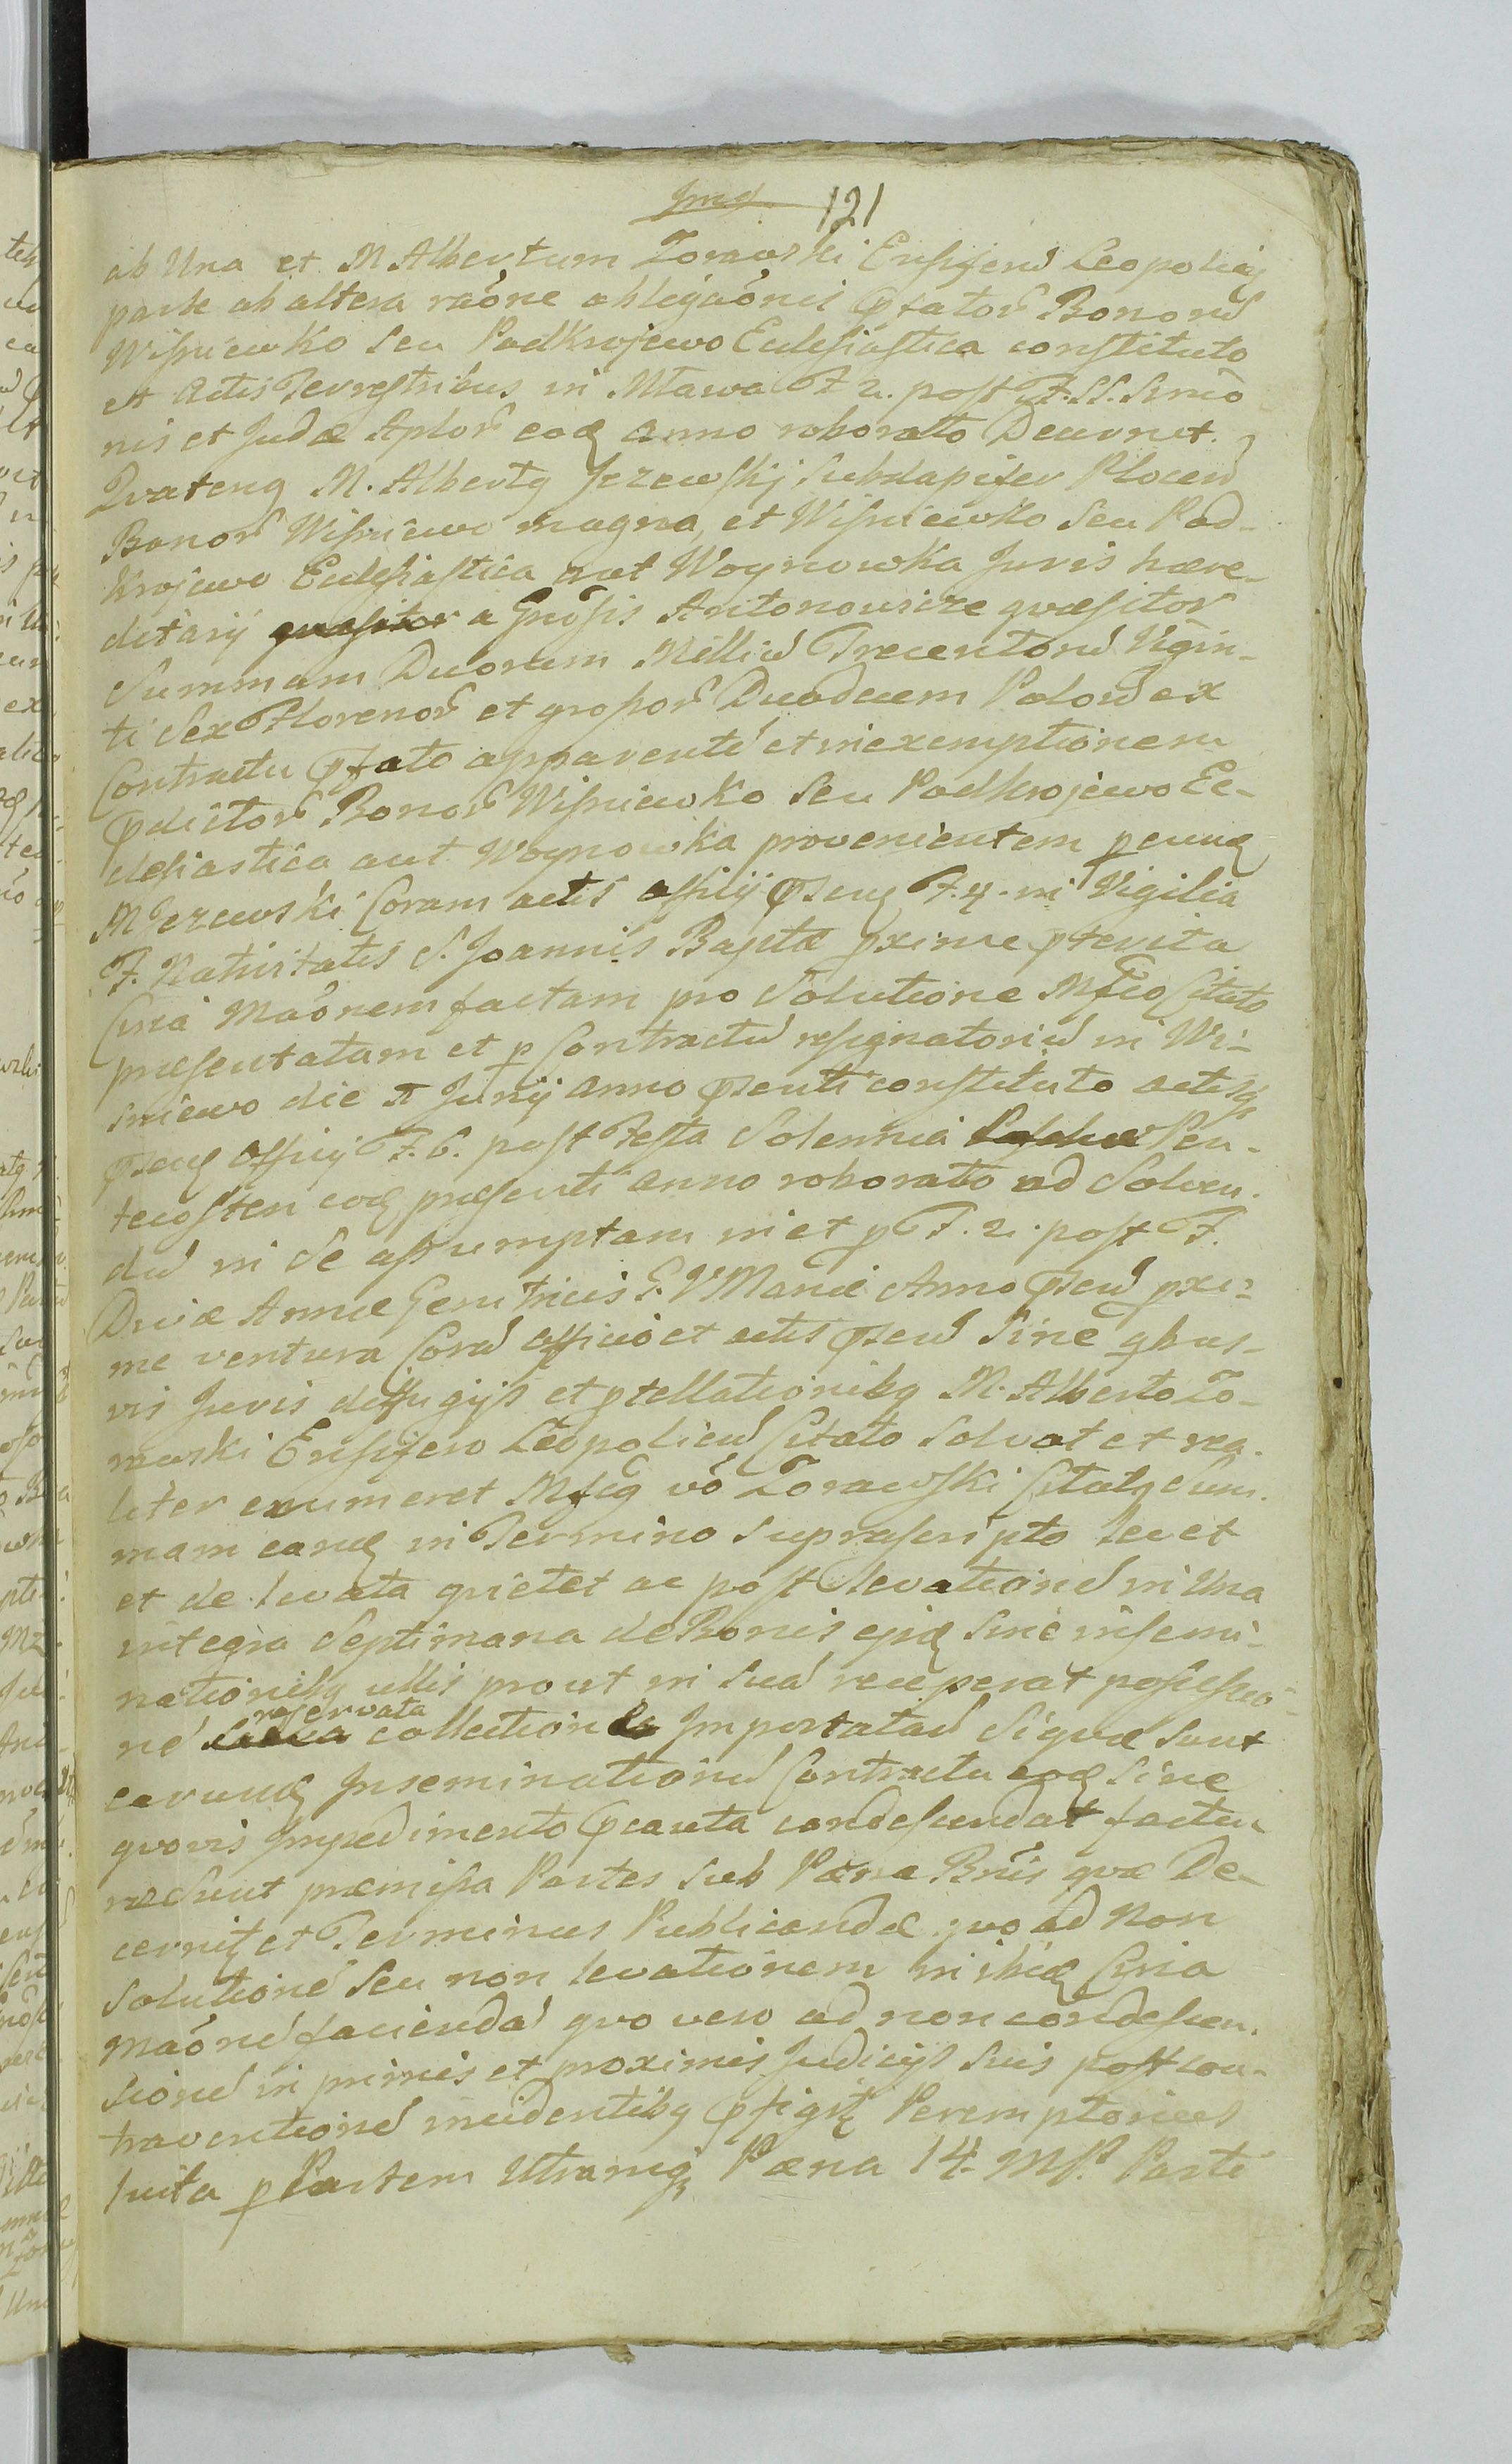 121
ab Una et M Albertum Zorawski Ensiferū Leopolieñ
parte ab altera raőne obligaőnis Pfatoř Bonorū
Wisniewko seu Podkrojewo Ecclesiastica constituto
et Actis Terrestribus in Mławā F 2. post F. SS. Simo
nis et Judæ Aploř eoq anno roborato Decernit.
Qvateng M. Albertg Jezewskj Subdapifer Plocen
Bonoř Wisniewo magna, et Wisniewko seu Pod-
krojewo Ecclesiastica aut Woynowka Juris hære-
ditarij quæsitor a Gnősis Antonowicze qvæsitoř
Summam Duorum Milliū Trecentorū Vigin-
ti Sex Florenoř et grossoř Duodecem Polon ex
Contractu Pfato apparentē et in exemptionem
Pdictoř Bonoř Wisniewko seu Podkrojewo Ec-
clesiastica aut Woynowka provenientem p eunq
M Jezewski Coram actis Offiij Pseng F. 4. in Vigilia
F. Nativitatis S. Joannis Baptæ pxime pterita
Cirīa Maőnem factam pro Solutione Mfico Citato
præsentatam et p Contractū resignatoriū in Wi-
sniewo die Junij anno Psenti constituto actisq
Pseng Offiij F. 6. post Festa Solennia Pen-
tecosten eoq præsenti anno roborato ad Solven-
dū in se assumptam in et p F. 2. post F.
Divæ Annæ Genitricis B. V Mariæ Anno Psen pxi-
me ventura Corā Officio et actis Psen Sine qbus-
vis Juris deffugijs et ptellationibg M. Alberto Zo-
rawski Ensifero Leopolien Citato Solvat et rea-
liter enumeret Mficg vő Zorawski Citatg Sum-
mam eanq in Termino Suprascripto levet
et de levata qvietet ac post levationē in Una
integra Septimana de Bonis ejsq Sine insemi-
nationibg ullis prout in Suā receperat possessio-
nē reservata collectione Importatarū Siqvæ Sunt
earunq Inseminationū Contractu eoq Sine
qvovis Impedimento Pcauta condescendat factu-
ræ Sunt præmissa Partes Sub Pæna Bnis qvæ De-
cernit et Terminus Publicandæ qvo ad non
Solutionē Seu non levationem in ibiq Cirīa
Maőnē faciendā qvo vero ad non condescen-
sionē in primis et proximis Judicijs Suis post con-
traventionē incidentibg Pfigit Peremptorius
luita p Partem Utramq Pæna 14. MP. Parti